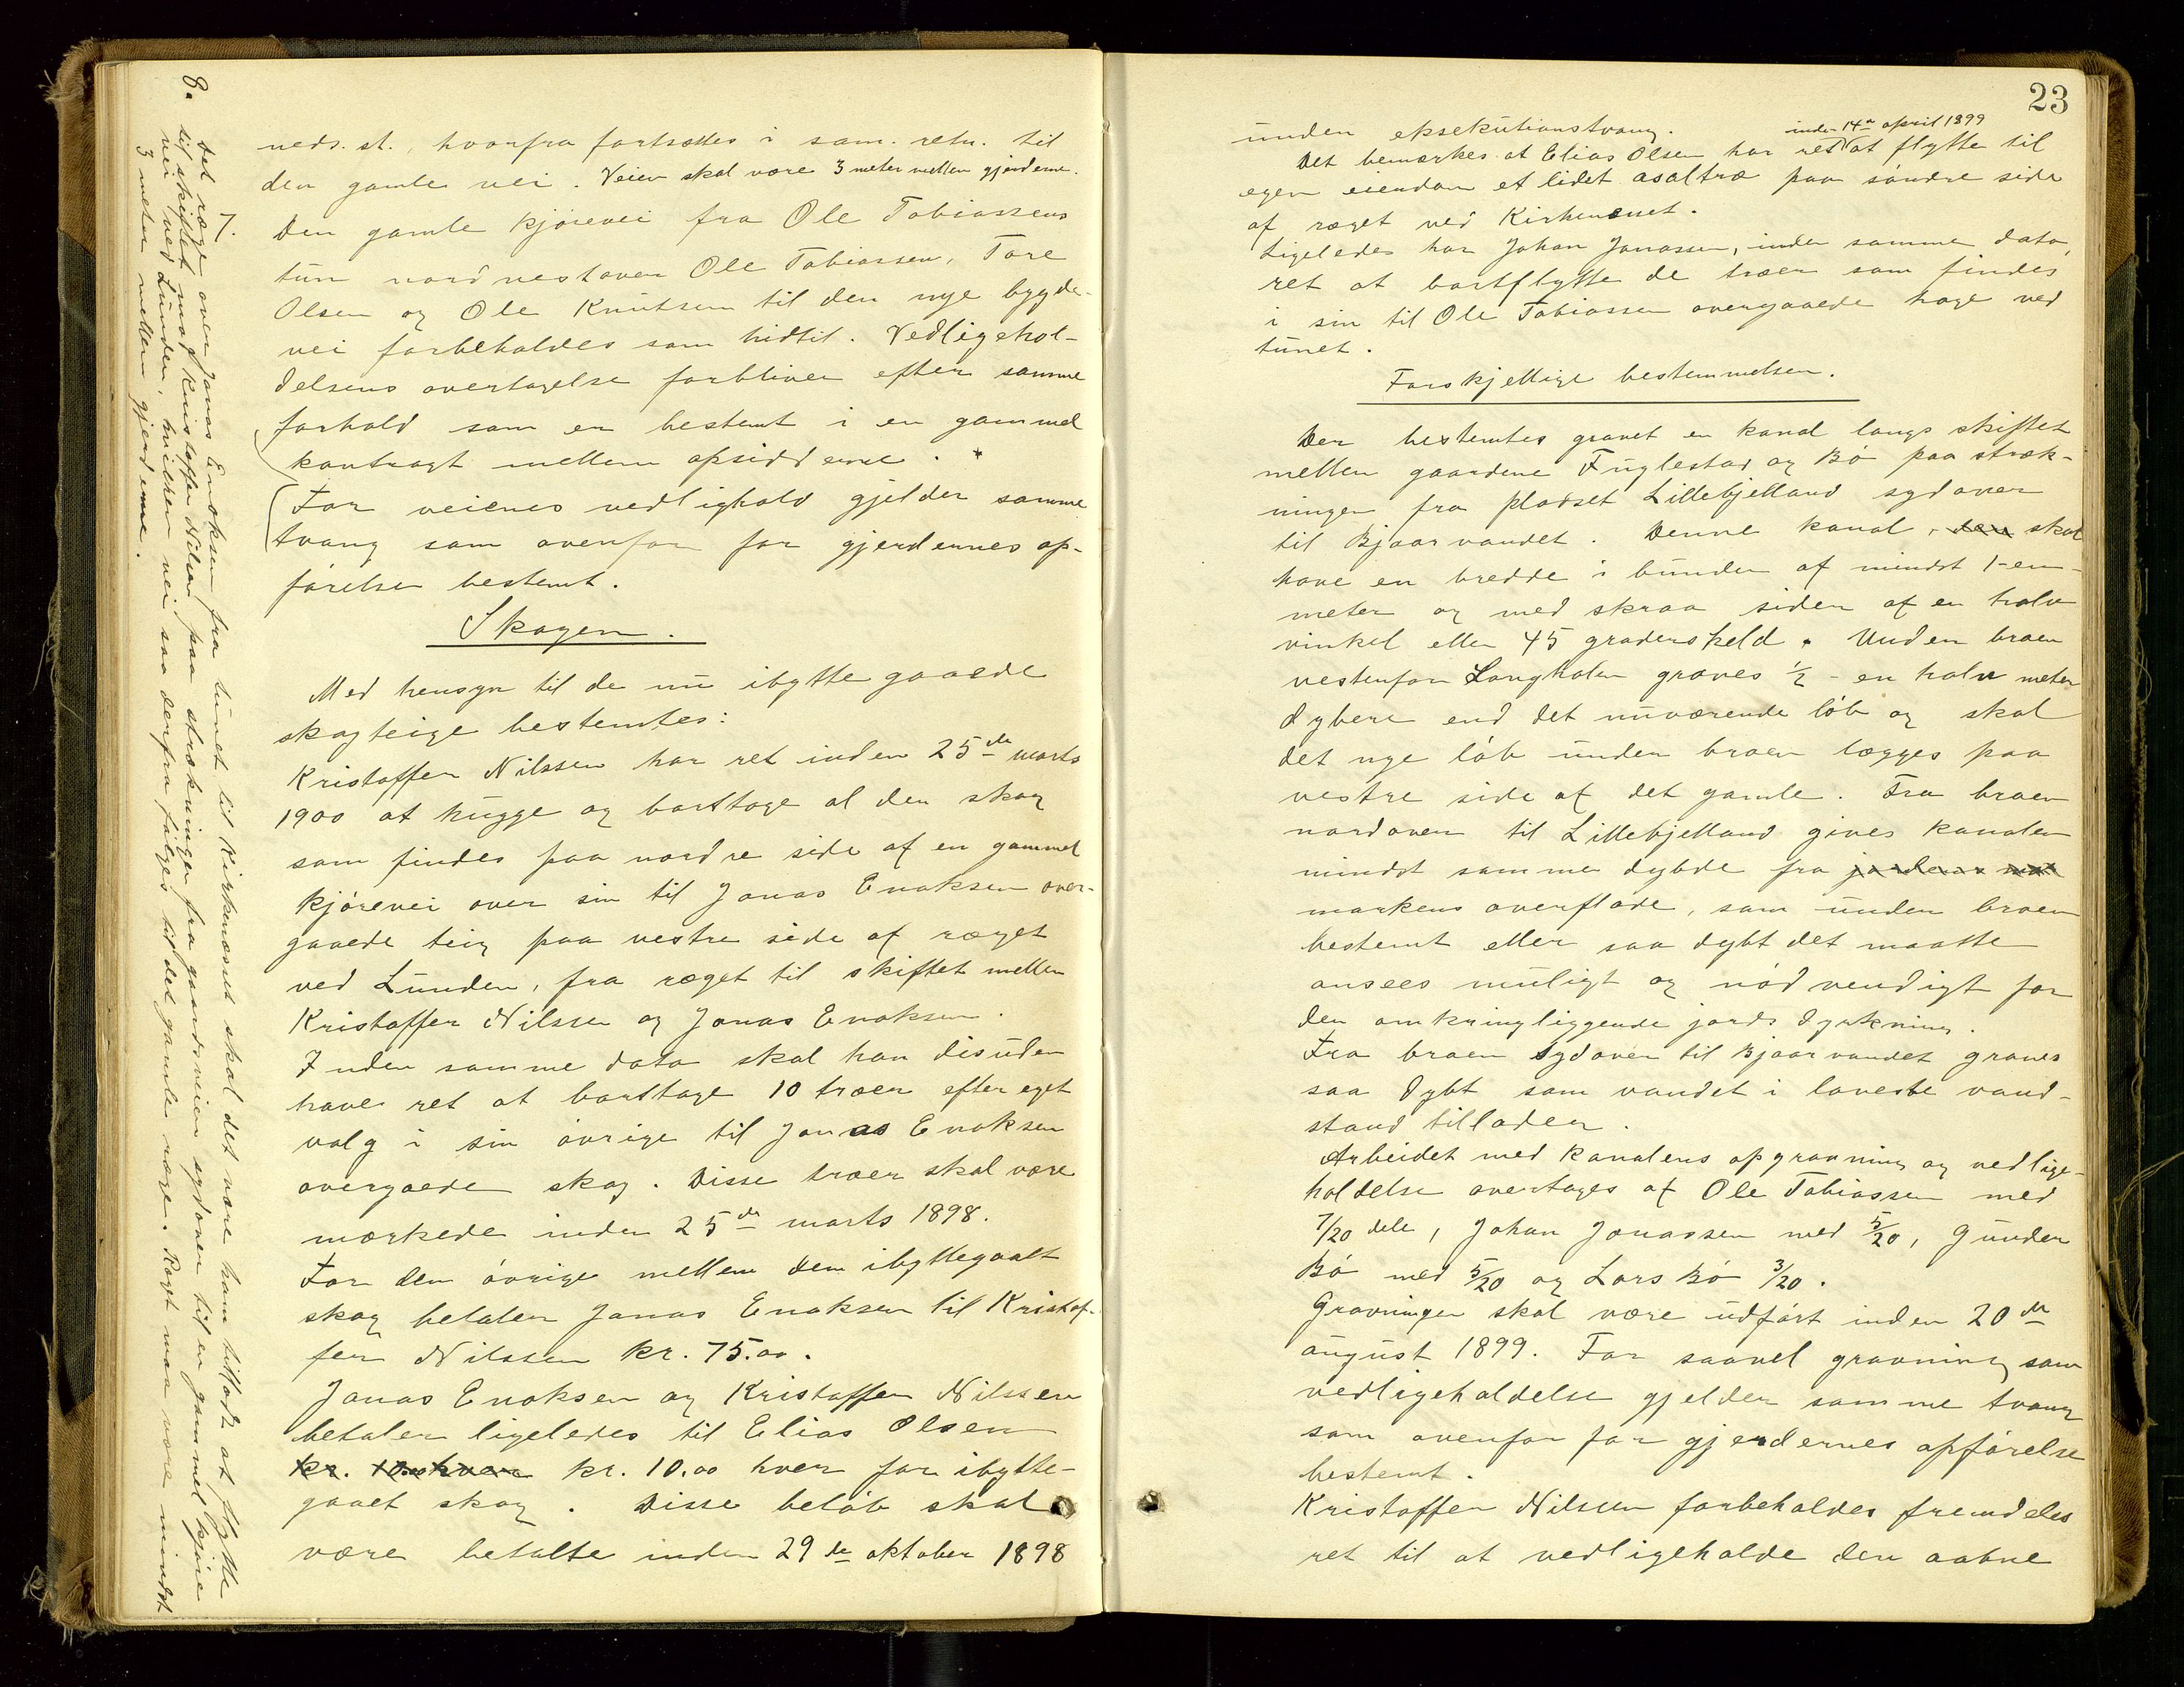 neds. st., hvorfra fortsættes i sam. retn. til
den gamle vei. Veien skal være 3 meter mellem gjerderne.
7.
Den gamle kjørevei fra Ole Tobiassens
tun nordvestover Ole Tobiassen, Tore
Olsen og Ole Knutsen til den nye bygde-
vei forbeholdes som hidtil. Vedligehol-
delsens overtagelse forbliver efter samme
forhold som er bestemt i en gammel
kontragt mellem opsidderne. *
For veienes vedlighold gjelder samme
tvang som ovenfor for gjerdernes op-
førelse bestemt.
Skogen.
Med hensyn til de nu ibyttegaaede
skogteige bestemtes:
Kristoffer Nilssen har ret inden 25de marts
1900 at hugge og borttage al den skog
som findes paa nordre side af en gammel
kjørevei over sin til Jonas Enoksen over-
gaaede teig paa vestre side af ræget
ved Lunden, fra ræget til skiftet mellem
Kristoffer Nilssen og Jonas Enoksen.
Inden samme dato skal han disuden
have ret at borttage 10 træer efter eget
valg i sin øvrige til Jonas Enoksen
overgaaede skog. Disse træer skal være
mærkede inden 25de marts 1898.
For den øvrige mellem dem ibyttegaalt
skog betaler Jonas Enoksen til Kristof-
fer Nilssen kr. 75.00.
Jonas Enoksen og Kristoffer Nilssen
betaler ligeledes til Elias Olsen
kr. 10.00 hver kr. 10.00 hver for ibytte-
gaaet skog. Disse beløb skal
være betalte inden 29de oktober 1898
8.
Det ræge over Jonas Enoksen fra tunet til Kirkenæsset skal det være ham tilladt at flytte
til skiftet mod Kristoffer Nilsen paa strækningen fra gaardsveien sydover til en gammel kjøre
vei ved Lunden, hvilken vei saa derfra følges til det gamle ræge. Rægt maa være mindst
3 meter mellem gjerderne.
23
under eksekutionstvang.
inden 14de april 1899
Det bemærkes at Elias Olsen har ret at flytte til
egen eiendom et lidet asaltræ paa søndre side
af ræget ved Kirkenæset.
Ligeledes har Johan Jonassen, inden samme dato,
ret at bortflytte de træer som findes
i sin til Ole Tobiassen overgaaede hage ved
tunet.
Forskjellige bestemmelser.
Der bestemtes gravet en kanal langs skiftet
mellem gaardene Fuglestad og Bø paa stræk-
ningen fra pladset Lillebjelland sydover
til Bjaarvandet. Denne kanal, den skal
have en bredde i bunden af mindst 1-en-
meter og med skraa sider af en halv
vinkel eller 45 graders held. Under broen
vestenfor Langholen graves ½ - en halv meter
dybere end det nuværende løb og skal
det nye løb under broen lægges paa
vestre side af det gamle. Fra broen
nordover til Lillebjelland gives kanalen
mindst samme dybde fra
markens overflade, som under broen
bestemt eller saa dybt det maatte
ansees muligt og nødvendigt for
den omkringliggende jords dyrkning.
Fra broen sydover til Bjaarvandet graves
saa dybt som vandet i laveste vand-
stand tillader.
Arbeidet med kanalens opgravning og vedlige-
holdelse overtages af Ole Tobiassen med
7/20 dele, Johan Jonassen med 5/20, Gunder
Bø med 5/20 og Lars Bø 3/20.
Gravningen skal være udført inden 20de
august 1899. For saavel gravning som
vedligeholdelse gjelder samme tvang
som ovenfor for gjerdernes opførelse
bestemt.
Kristoffer Nilssen forbeholdes fremdeles
ret til at vedligeholde den aabne